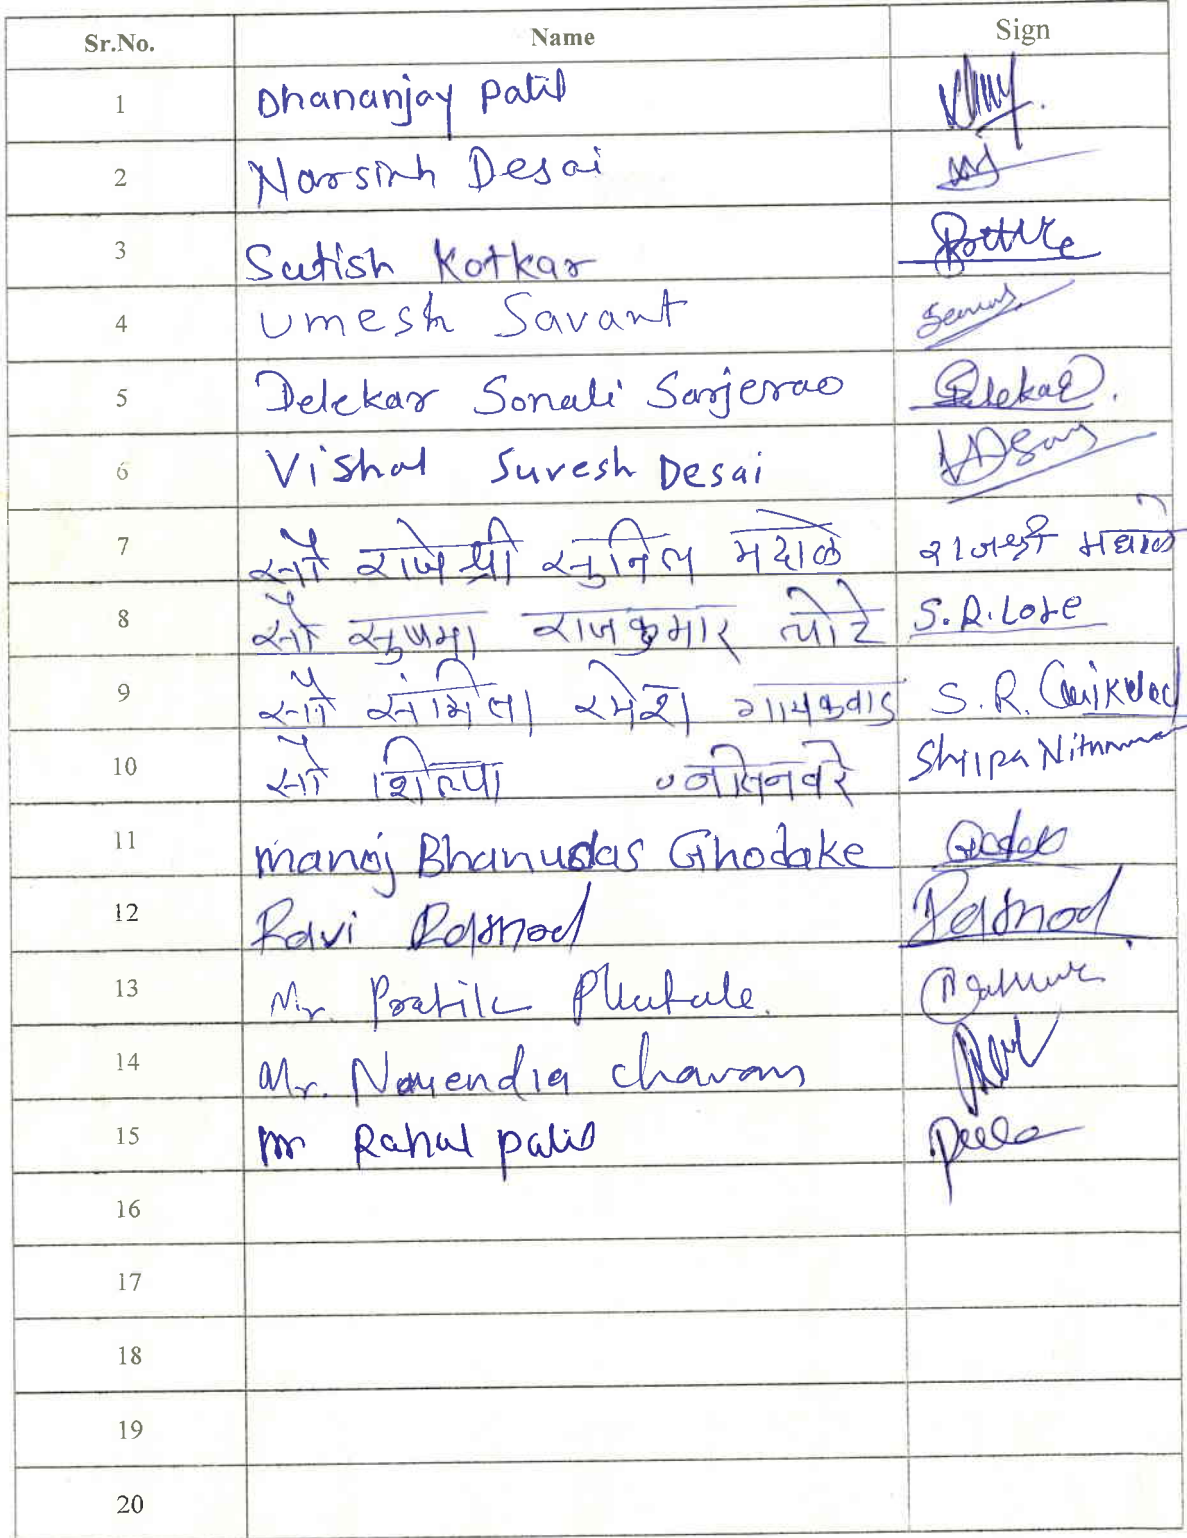 Sr.No. Name Sign
1 Dhananjay Patil
2 Narsinh Desai
3 Satish Kotkar
4 Umesh Savant
5 Delekar Sonali Sarjerao Delekar.
6 Vishal Suresh Desai
7 सौ राजेश्री सुनिल मदाळे राजश्री
8 सौ सुषमा राजकुमार लोटे S.R.Lote
9 सौ संगिता रमेश गायकवाड S.R. Gaikwad
10 सौ शिल्पा Shilpa
11 Manoj Bhanudas Ghodake
12 Ravi Rathod Rathod
13 Mr. Pratik Phutale.
14 Mr. Narendra Chavan
15 Mr Rahul Patil
16
17
18
19
20